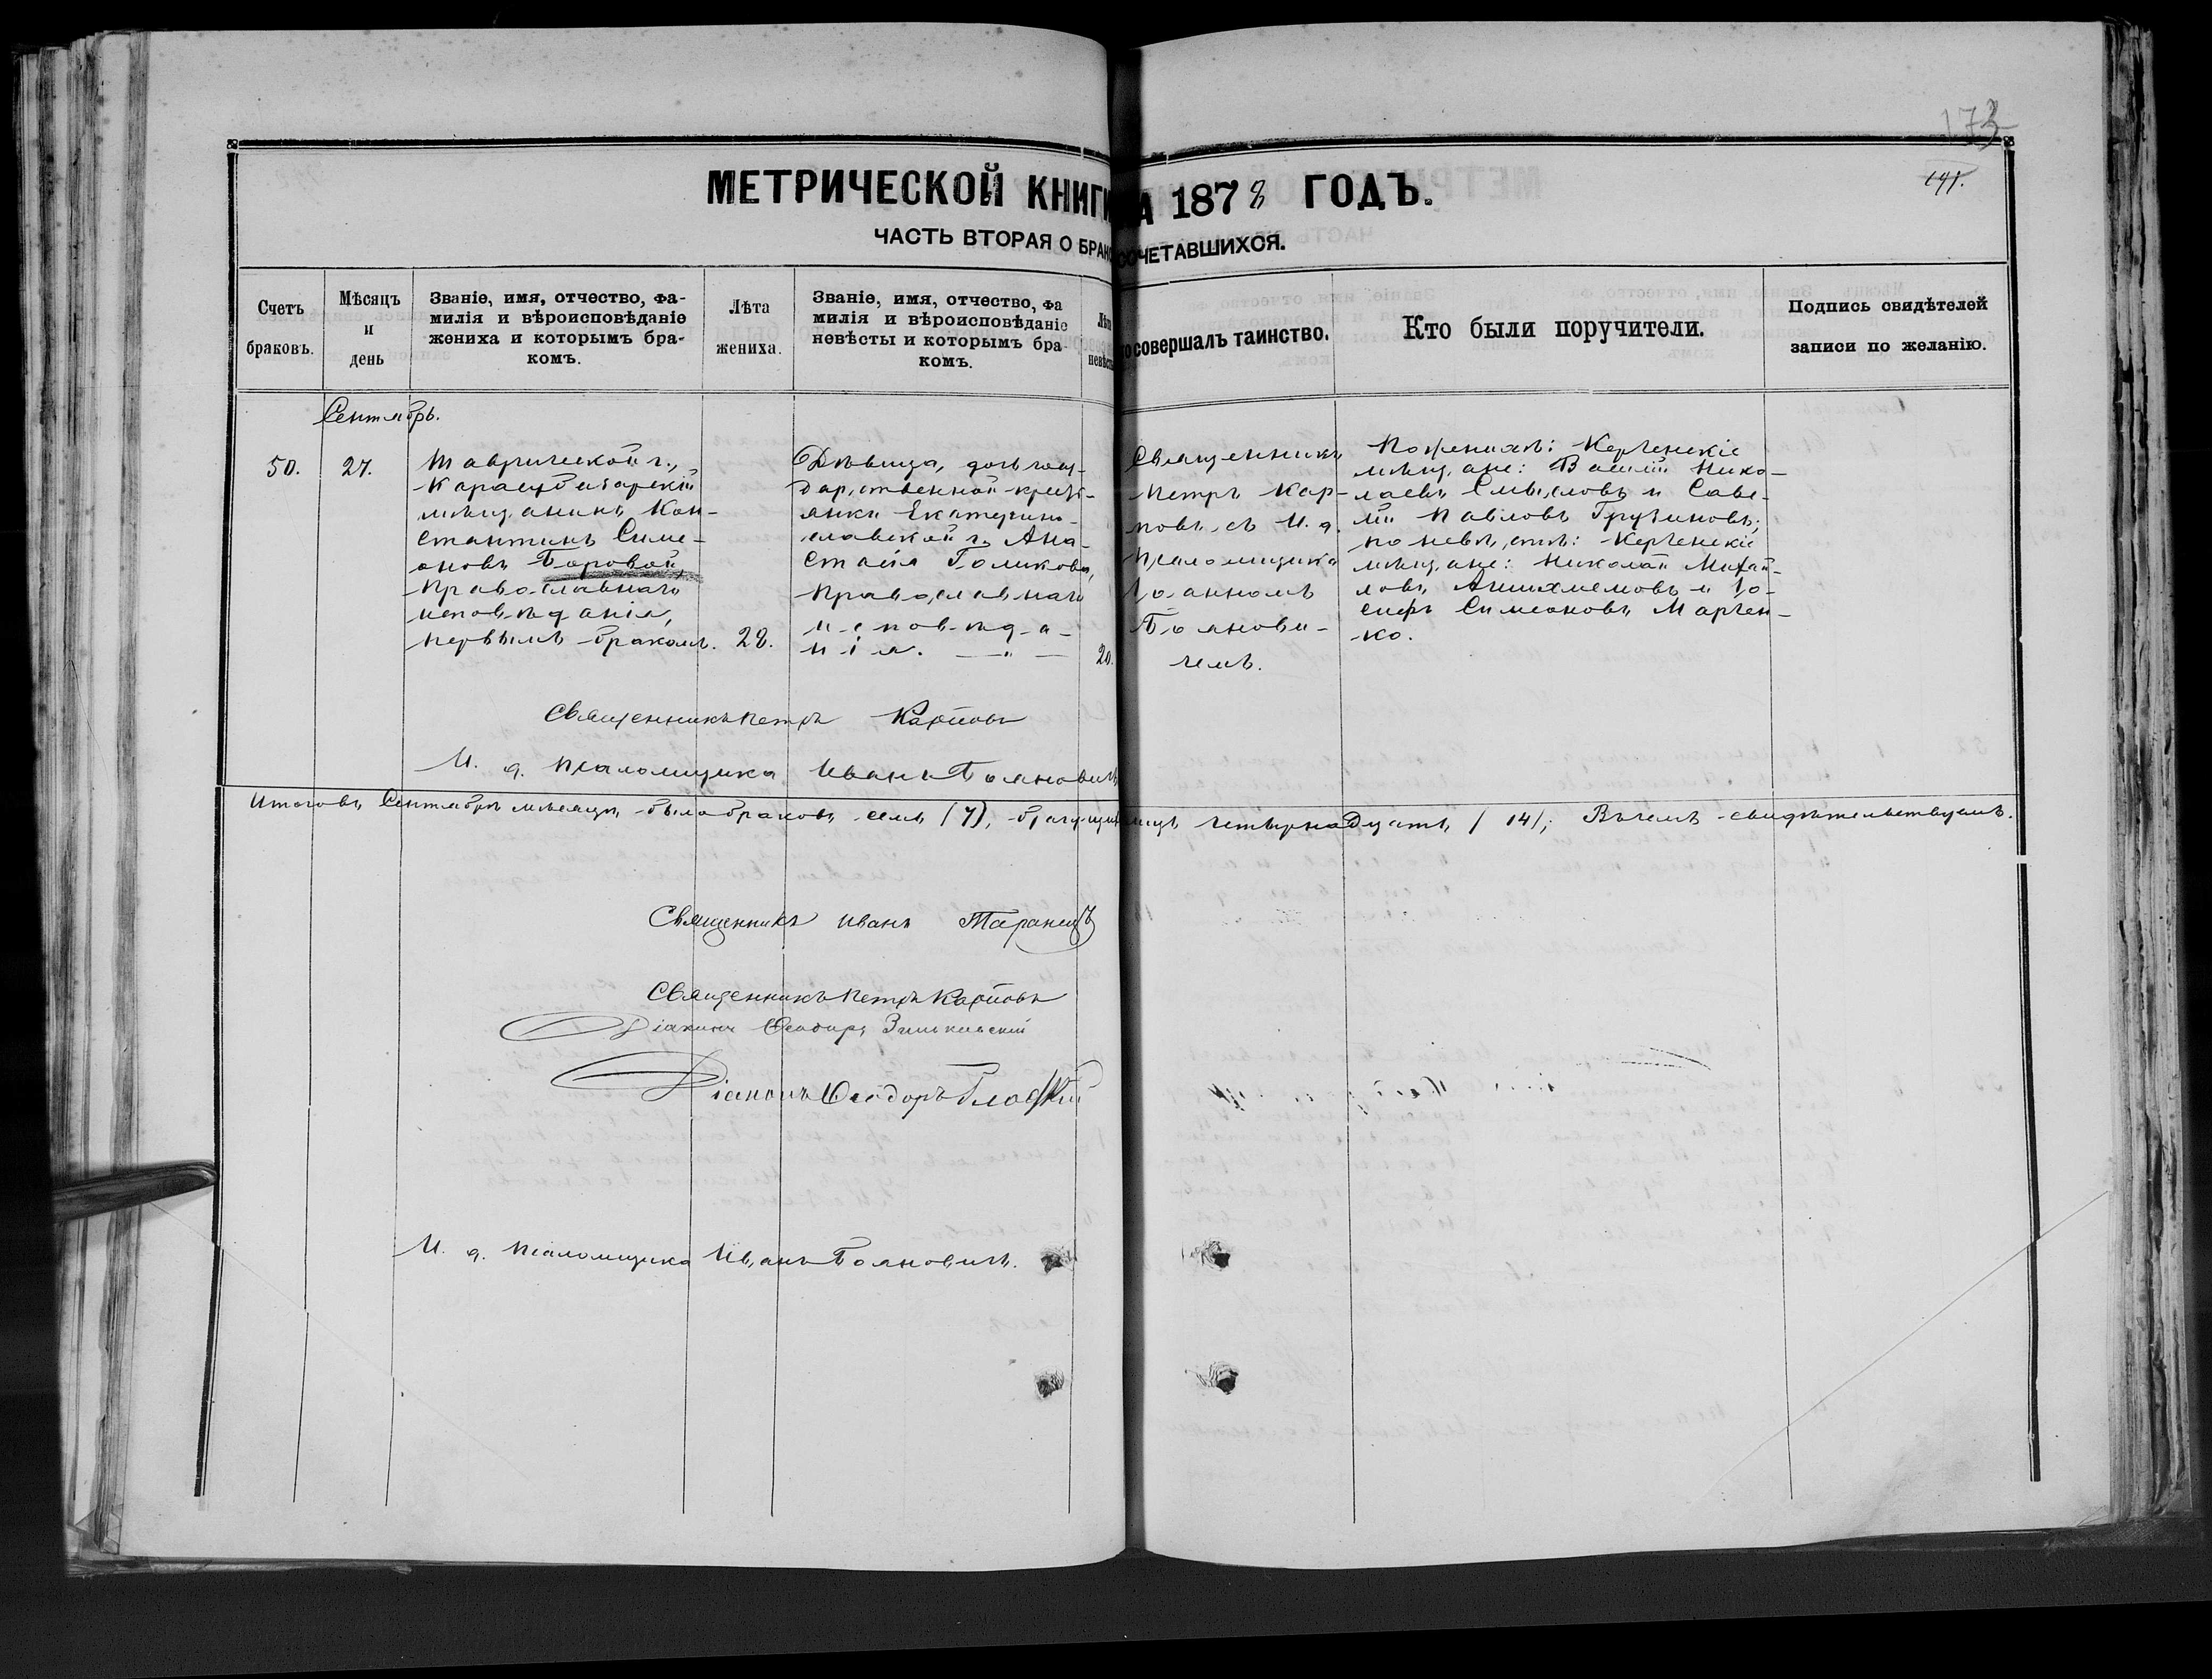 173
141.
МЕТРИЧЕСКОЙ КНИГИ НА 1878 ГОДЪ.
ЧАСТЬ ВТОРАЯ О БРАКОСОЧЕТАВШИХСЯ.
Счетъ браковъ.
Мѣсяцъ и день
Званіе, имя, отчество, фа-
милія и вѣроисповѣданіе
жениха и которымъ бра-
комъ.
Лѣта жениха.
Званіе, имя, отчество, фа
милія и вѣроисповѣданіе
невѣсты и которымъ бра-
комъ.
Лѣта невѣсты
Кто совершалъ таинство.
Кто были поручители.
Подпись свидѣтелей
записи по желанію.
Сентябрь.
50.
27.
Таврической г.,
Карасубазарскій
мѣщанинъ Кон-
стантинъ Симе-
оновъ Боровой,
православнаго
исповѣданія,
первымъ бракомъ.
28.
Дѣвица, дочь госу-
дарственной кресть-
янки Екатерино-
славской г. Ана-
стасія Голикова,
православнаго
исповѣда-
нія. — „ —
20.
Священникъ
Петръ Кар-
повъ съ И. д.
псаломщика
Іоанномъ
Бояно­ви-
чемъ.
По женихѣ: Керченскіе
мѣщане: Василій Нико-
лаевъ Смысловъ и Саве-
лій Павловъ Грузиновъ;
по невѣстѣ: Керченскіе
мѣщане: Николай Михай-
ловъ и Іо-
сифъ Симеоновъ Марчен-
ко.
Священникъ Петръ Карповъ
И. д. псаломщика Иванъ Бояновичъ
Итого въ Сентябрѣ мѣсяцѣ было браковъ семь (7), лицъ четырнадцать (14); Въ чемъ свидѣтельствуемъ.
Священникъ Иванъ Таранецъ
Священникъ Петръ Карповъ
Діаконъ Ѳеодоръ
Діаконъ Ѳеодоръ
И. д. псаломщика Иванъ Бояновичъ.